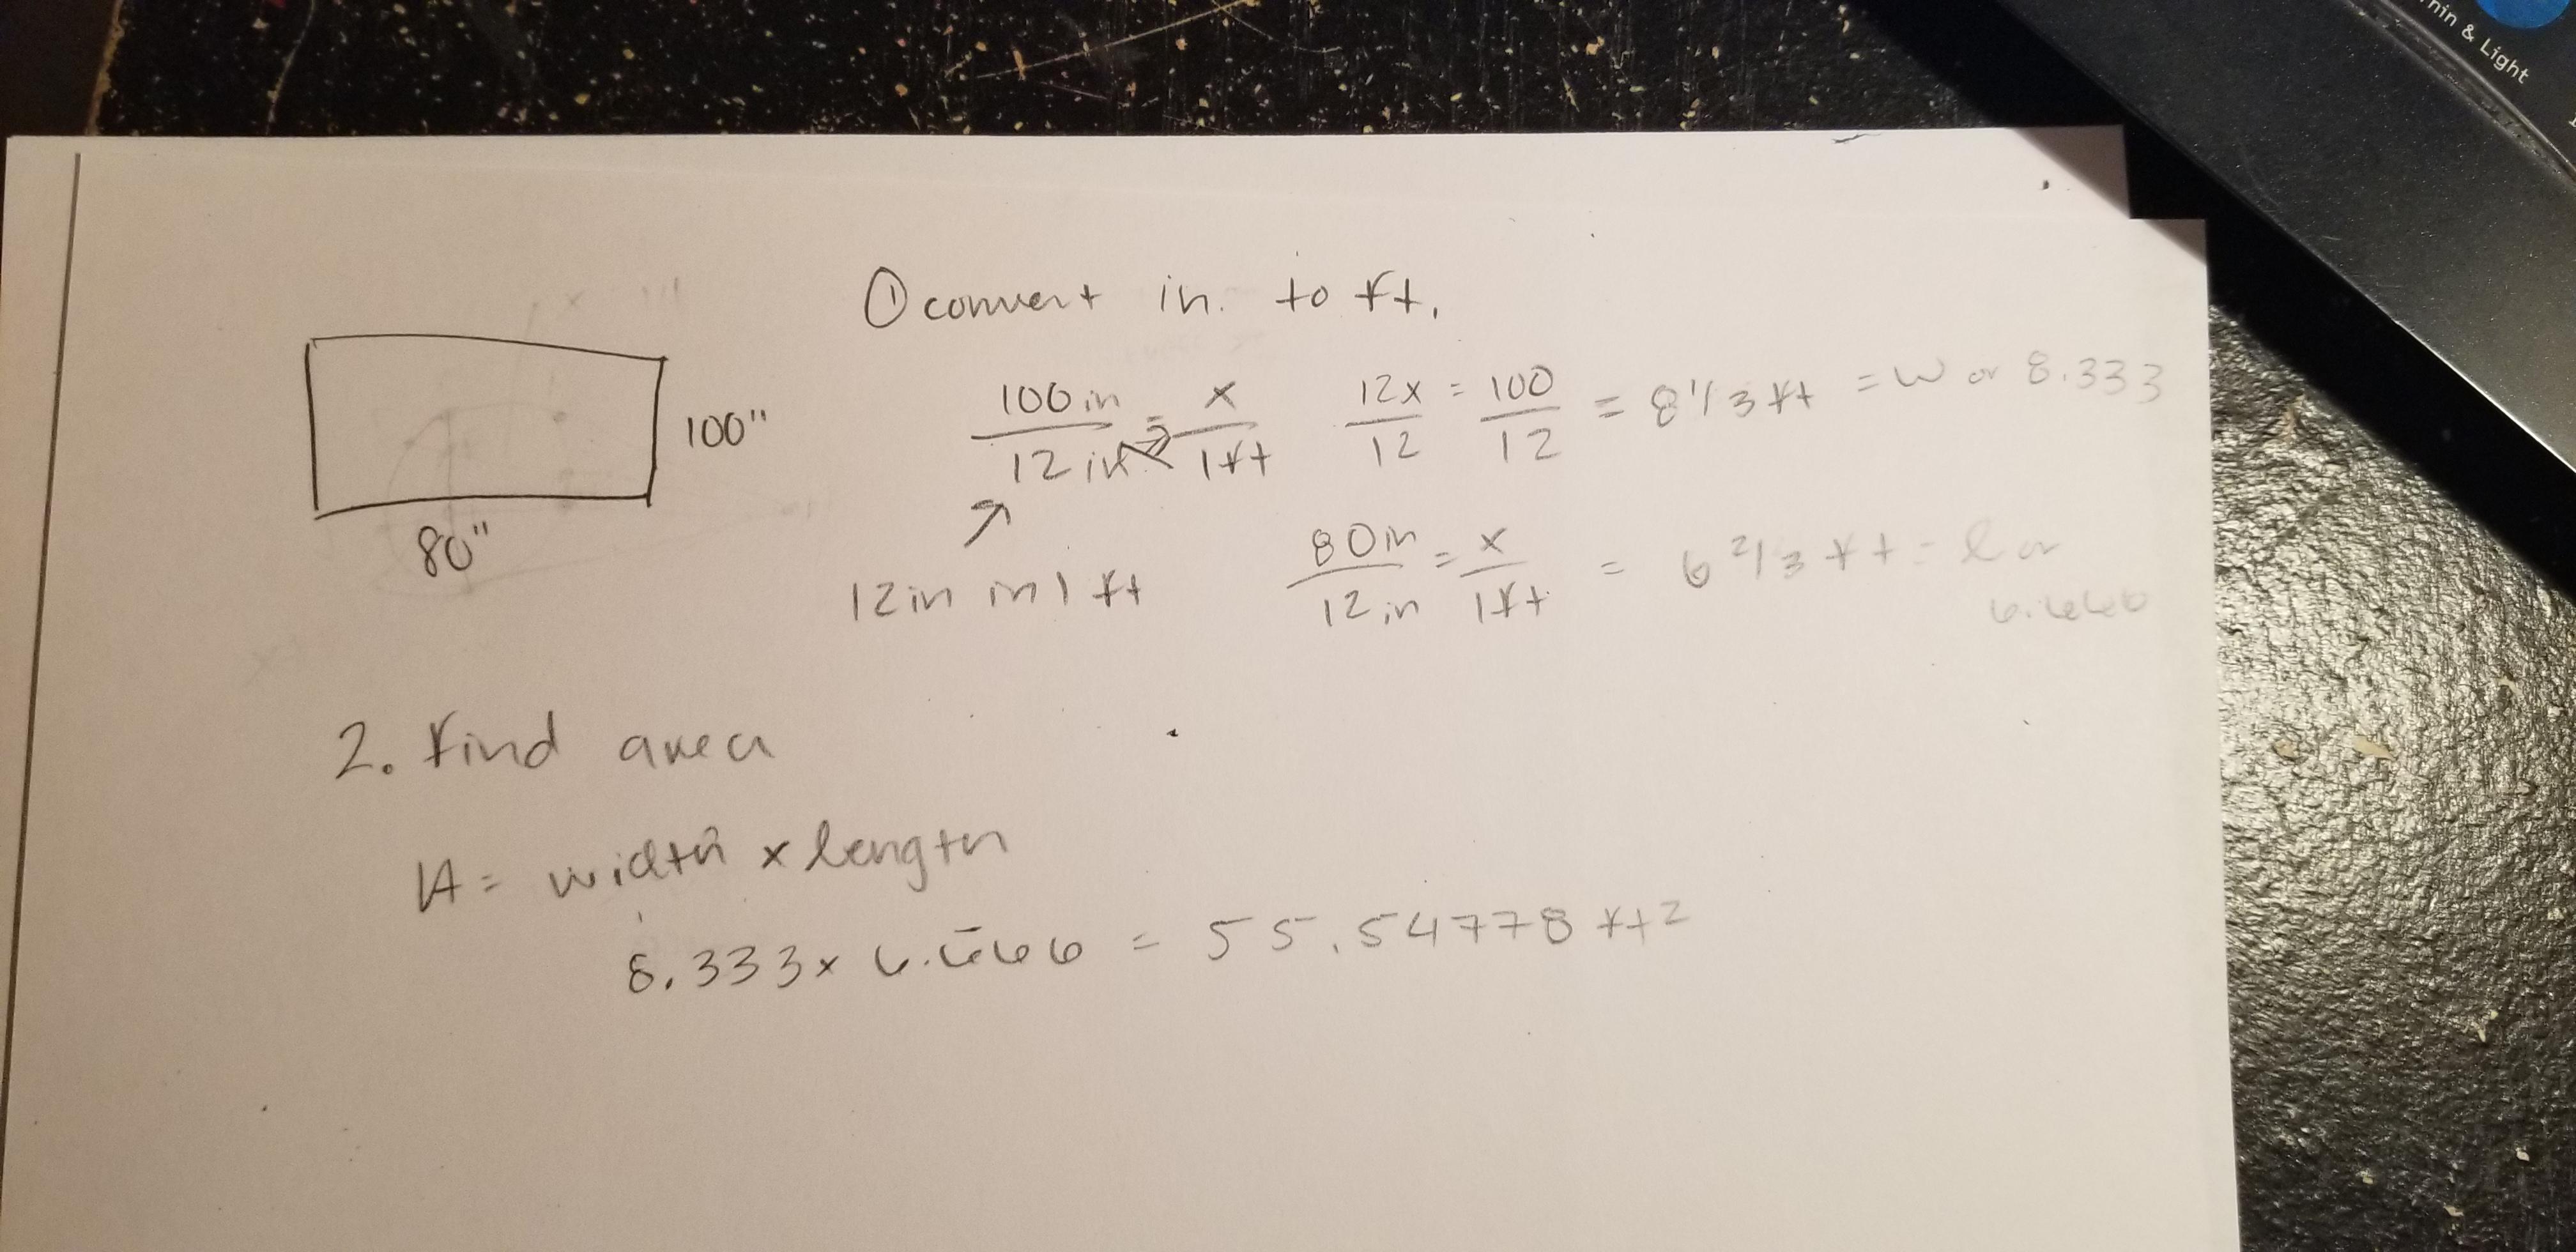 ① convert in. to ft.
100 in / 12 in = x / 1ft   12x / 12 = 100 / 12 = 8 1/3 ft = w or 8.333
100"
80"
12 in in 1 ft
80 in / 12 in = x / 1ft = 6 2/3 ft = l or
6.666
2. Find area
A = width x length
8.333 x 6.666 = 55.54778 ft²
& Light